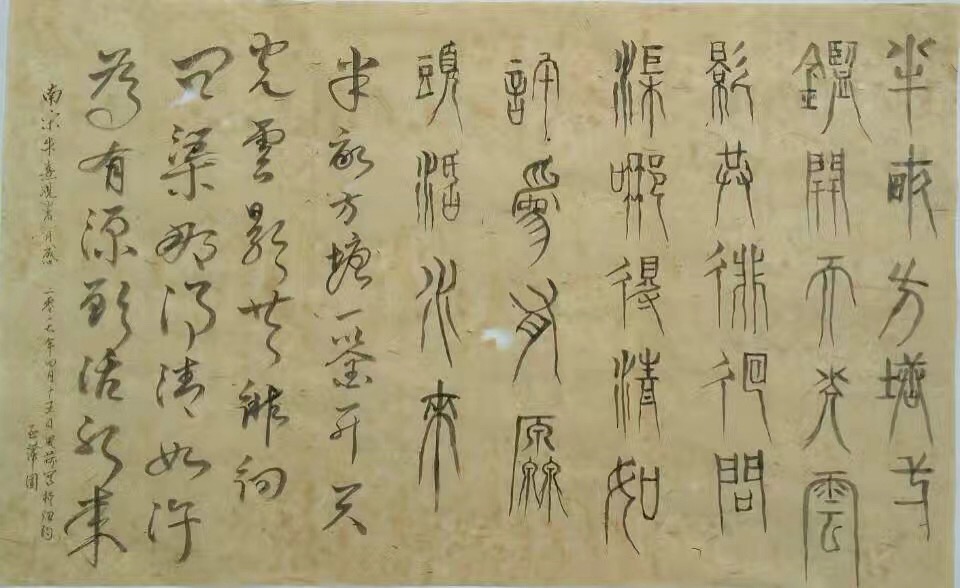 半畝方塘一
鑑開天光雲
影共徘徊問
渠哪得清如
許為有源
頭活水來
半畝方塘一鉴开天
光雲影共徘徊
问渠那得清如许
為有源頭活水来
南宋朱熹观书有感 二零一七年四月十五日